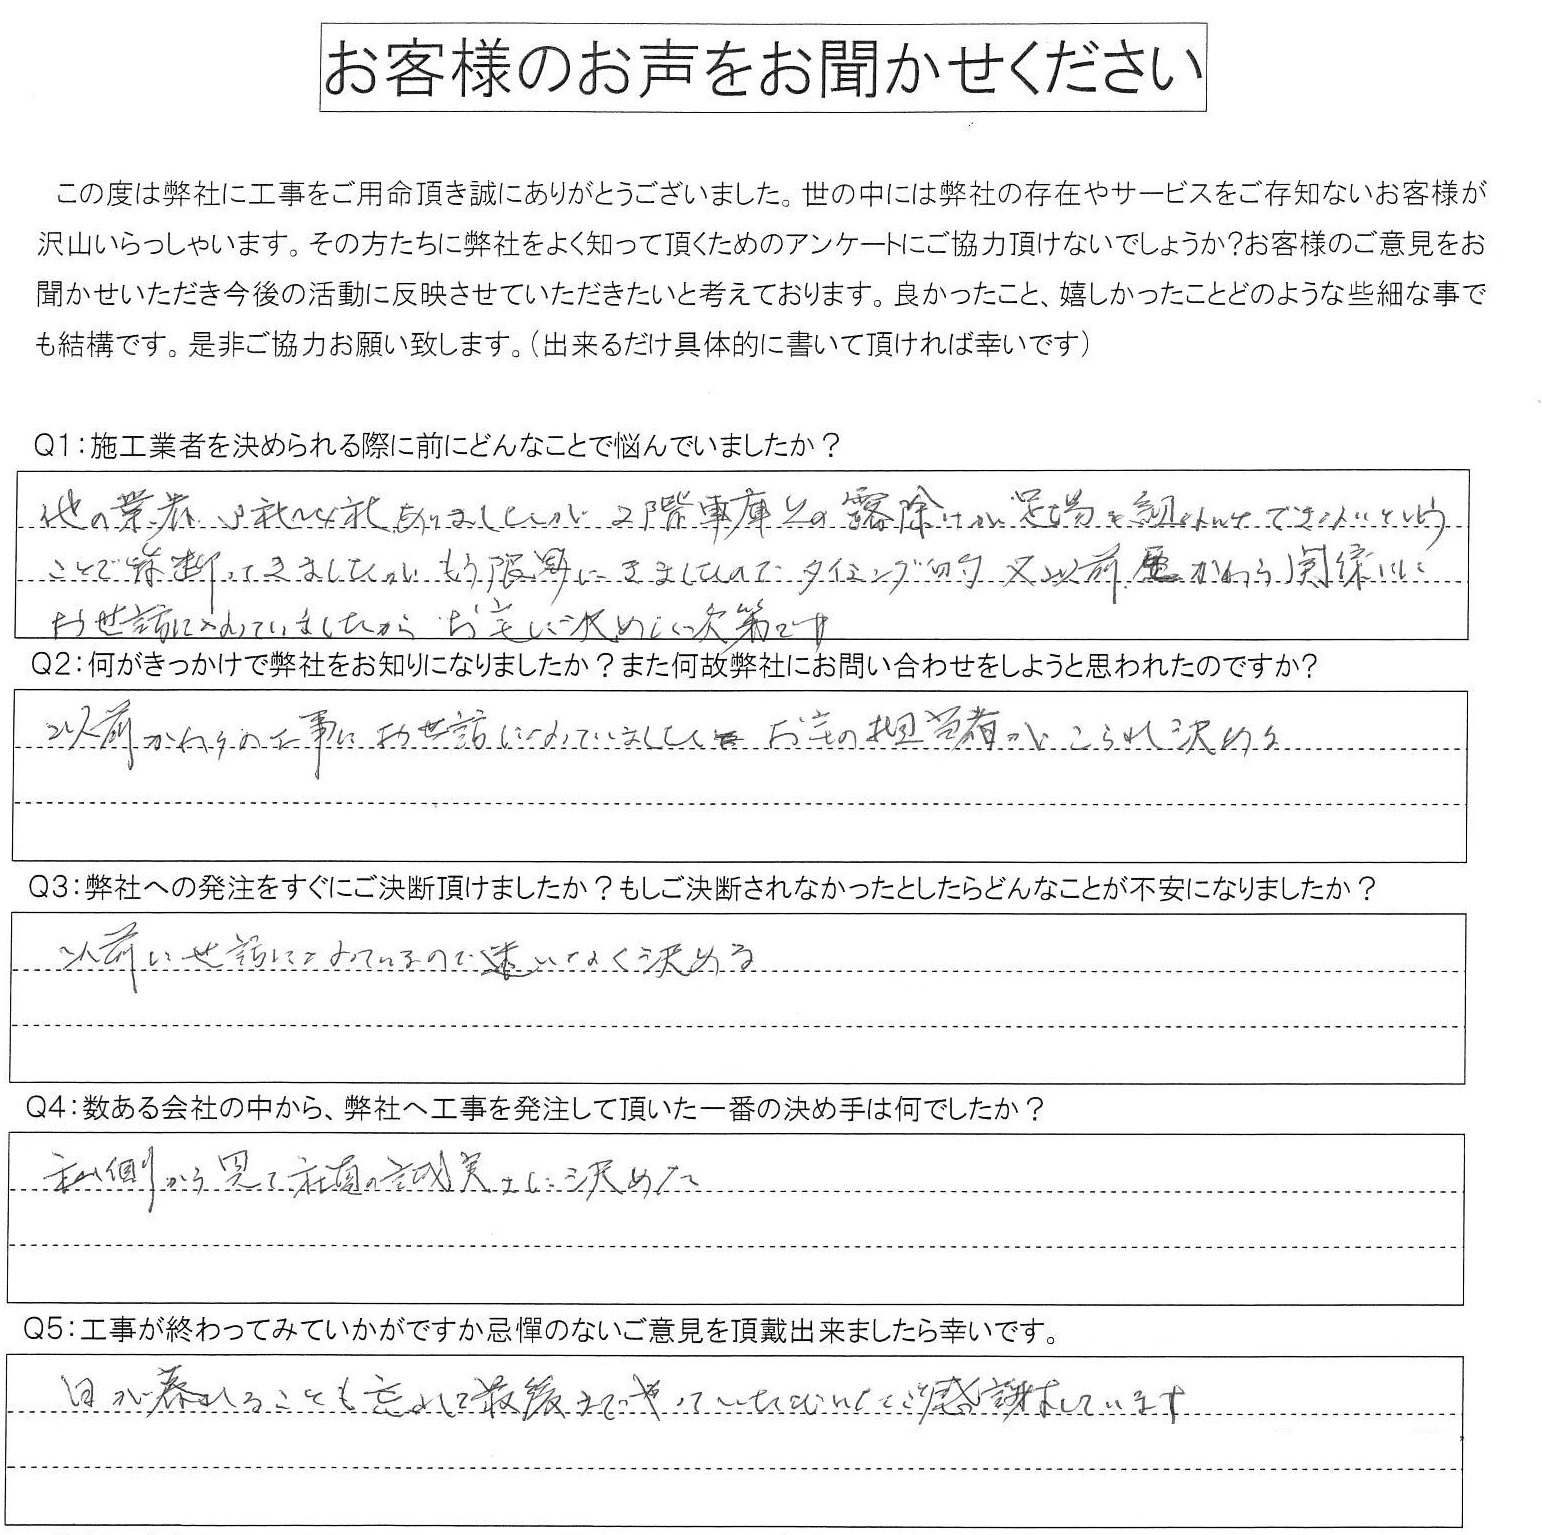 お客様のお声をお聞かせください
この度は弊社に工事をご用命頂き誠にありがとうございました。世の中には弊社の存在やサービスをご存知ないお客様が
沢山いらっしゃいます。その方たちに弊社をよく知って頂くためのアンケートにご協力頂けないでしょうか?お客様のご意見をお
聞かせいただき今後の活動に反映させていただきたいと考えております。良かったこと、嬉しかったことどのような些細な事で
も結構です。是非ご協力お願い致します。(出来るだけ具体的に書いて頂ければ幸いです)
Q1:施工業者を決められる際に前にどんなことで悩んでいましたか?
他の業者 3社〜4社ありましたが 2階車庫上の露除けが足場を組めないできないという
ことで 断ってきましたが もう限界にきましたので タイミング的 又以前 かわら関係に
お世話になっていましたから お宅に決めし次第です
Q2:何がきっかけで弊社をお知りになりましたか?また何故弊社にお問い合わせをしようと思われたのですか?
以前かわらの工事にお世話になっていました お宅の担当者がこられ決める
Q3:弊社への発注をすぐにご決断頂けましたか?もしご決断されなかったとしたらどんなことが不安になりましたか?
以前に世話になっているので迷いなく決める
Q4:数ある会社の中から、弊社へ工事を発注して頂いた一番の決め手は何でしたか?
私側から見て社員の誠実さに決めた
Q5:工事が終わってみていかがですか忌憚のないご意見を頂戴出来ましたら幸いです。
日が暮れることも忘れて最後までやっていただいたこと感謝しています